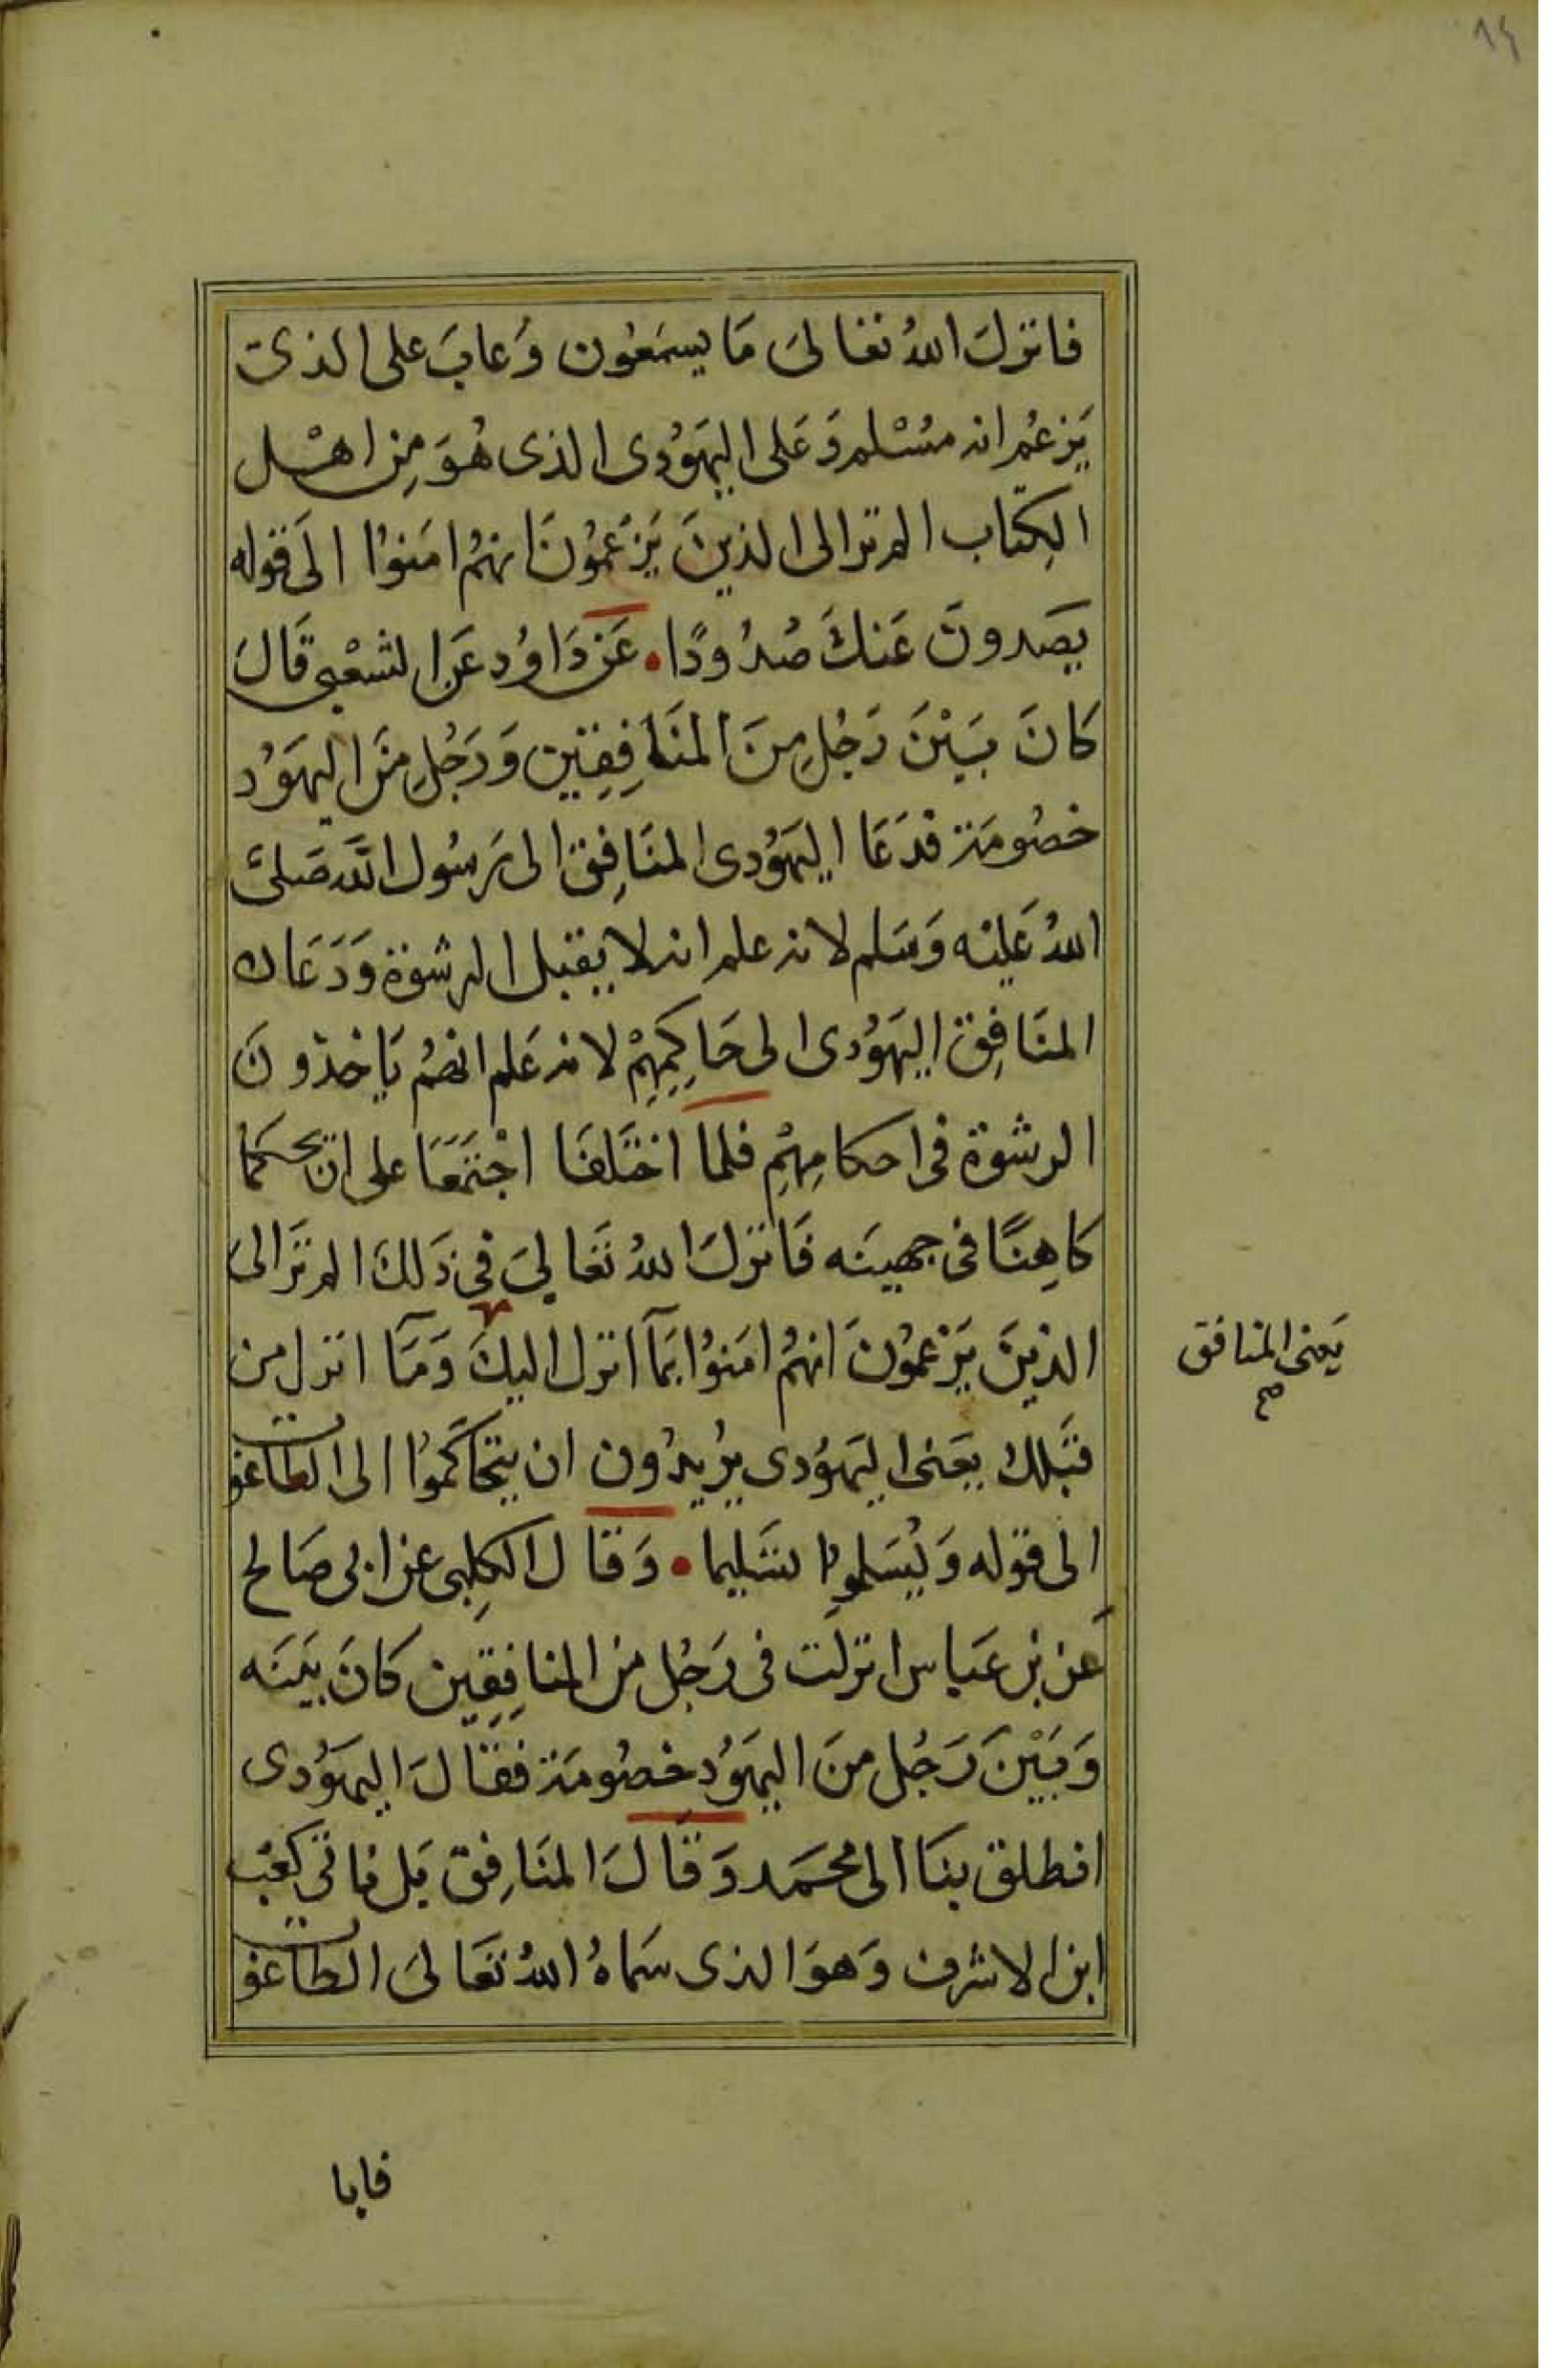 ١٤
فانزلَ اللهُ تعَالىَ مَا يسمَعُون وَعابَ على الذى
يَزعُم انه مسْلم وَعَلى اليَهوُدى الذى هُوَ مِن اهْل
الكِتاب الم تر الى الذينَ يَزْعُموُنَ انهمُ امَنوُا الىَ قوله
يصَدونَ عَنكَ صُدُودًا • عَن دَاوُد عَن الشعْبى قَالَ
كَانَ بَيْنَ رَجُلِ مِنَ المنَافِقِين وَرَجُلِ منَ اليهَوُد
خصُومَة فدَعَا اليَهوُدى المنَافِق الى رَسُول اللَّه صَلىَّ
اللهُ عَليْه وَسَلم لانه علم انه لا يقبل الرشوَة وَدَعَاه
المنَافِق اليَهوُدى الى حَاكِمِهِمْ لانه عَلم انهمُ يَاخذونَ
الرشوَة فى احكامِهِم فلما اختَلفَا اجْتَمَعَا على ان يحكمَا
كاهِنًا فى جهينَه فَانزلَ اللهُ تَعَالىَ فى ذَلك الم تَرَ الى
الذينَ يَزعموُنَ انهمُ امَنوُا بمَآ انزل اليكَ وَمَآ انزل من
قبَلك يعَنى اليَهوُدى يرُيدُون ان يتحَاكَموُا الى الطاغوت
الى قوله وَيُسَلموُا تسَليما • وَقال الكلِبى عن ابى صَالح
عَن بن عَباس انزلَت فى رَجُل من المنافِقِين كَانَ بَينَه
وَبَيْنَ رَجُل مِنَ اليهَوُد خصُومَة فقالَ اليهَوُدى
انطلق بنَا الى محمَد وَقَالَ المنَافِق بَل ناتى كعْب
ابن الاشرف وَهوَ الذى سَماهُ اللهُ تعَالىَ الطاغوت
يَعنى المنافق
صح
فابا